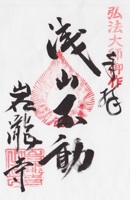 弘法大師御作
奉拝
浅山不動
岩瀧寺